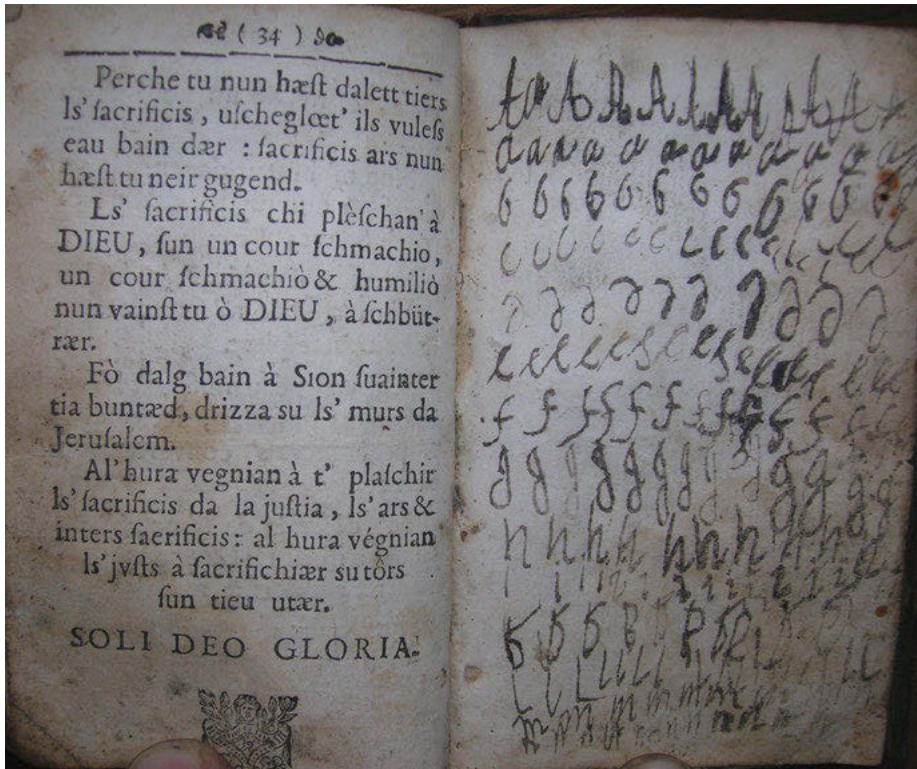 ( 34 )
Perche tu nun hæst dalett tiers
ls' ſacrificis, uſchegl​œt' ils vuleſs
eau bain dær : ſacrificis ars nun
hæst tu neir gugend.
Ls' ſacrificis chi plèſchan' à
DIEU, ſun un cour ſchmachio,
un cour ſchmachiò & humiliò
nun vainſt tu ò DIEU, à ſchbüt-
rær.
Fò dalg bain à SION ſuainter
tia buntæd, drizza su ls' murs da
Jeruſalem.
Al' hura vegnian à t' plaſchir
ls' ſacrificis da la juſtia, ls' ars &
inters ſaerificis : al hura végnian
ls' jvſts à ſacrifichiær su tôrs
ſun tieu utær.
SOLI DEO GLORIA.
A a A A A A A A A A A
a a a a a a a a a a a a
6 6 6 6 6 6 6 6 6 6 6
c c c c c c c c c c c c c
∂ ∂ ∂ ∂ ∂ ∂ ∂ ∂ ∂ ∂
e e e e e e e e e e e e e
f f f f f f f f f f f f
g g g g g g g g g g g g
h h h h h h h h h h h
i i i i i i i i i i i
l l l l l l l l l l l
m m m m m m m m